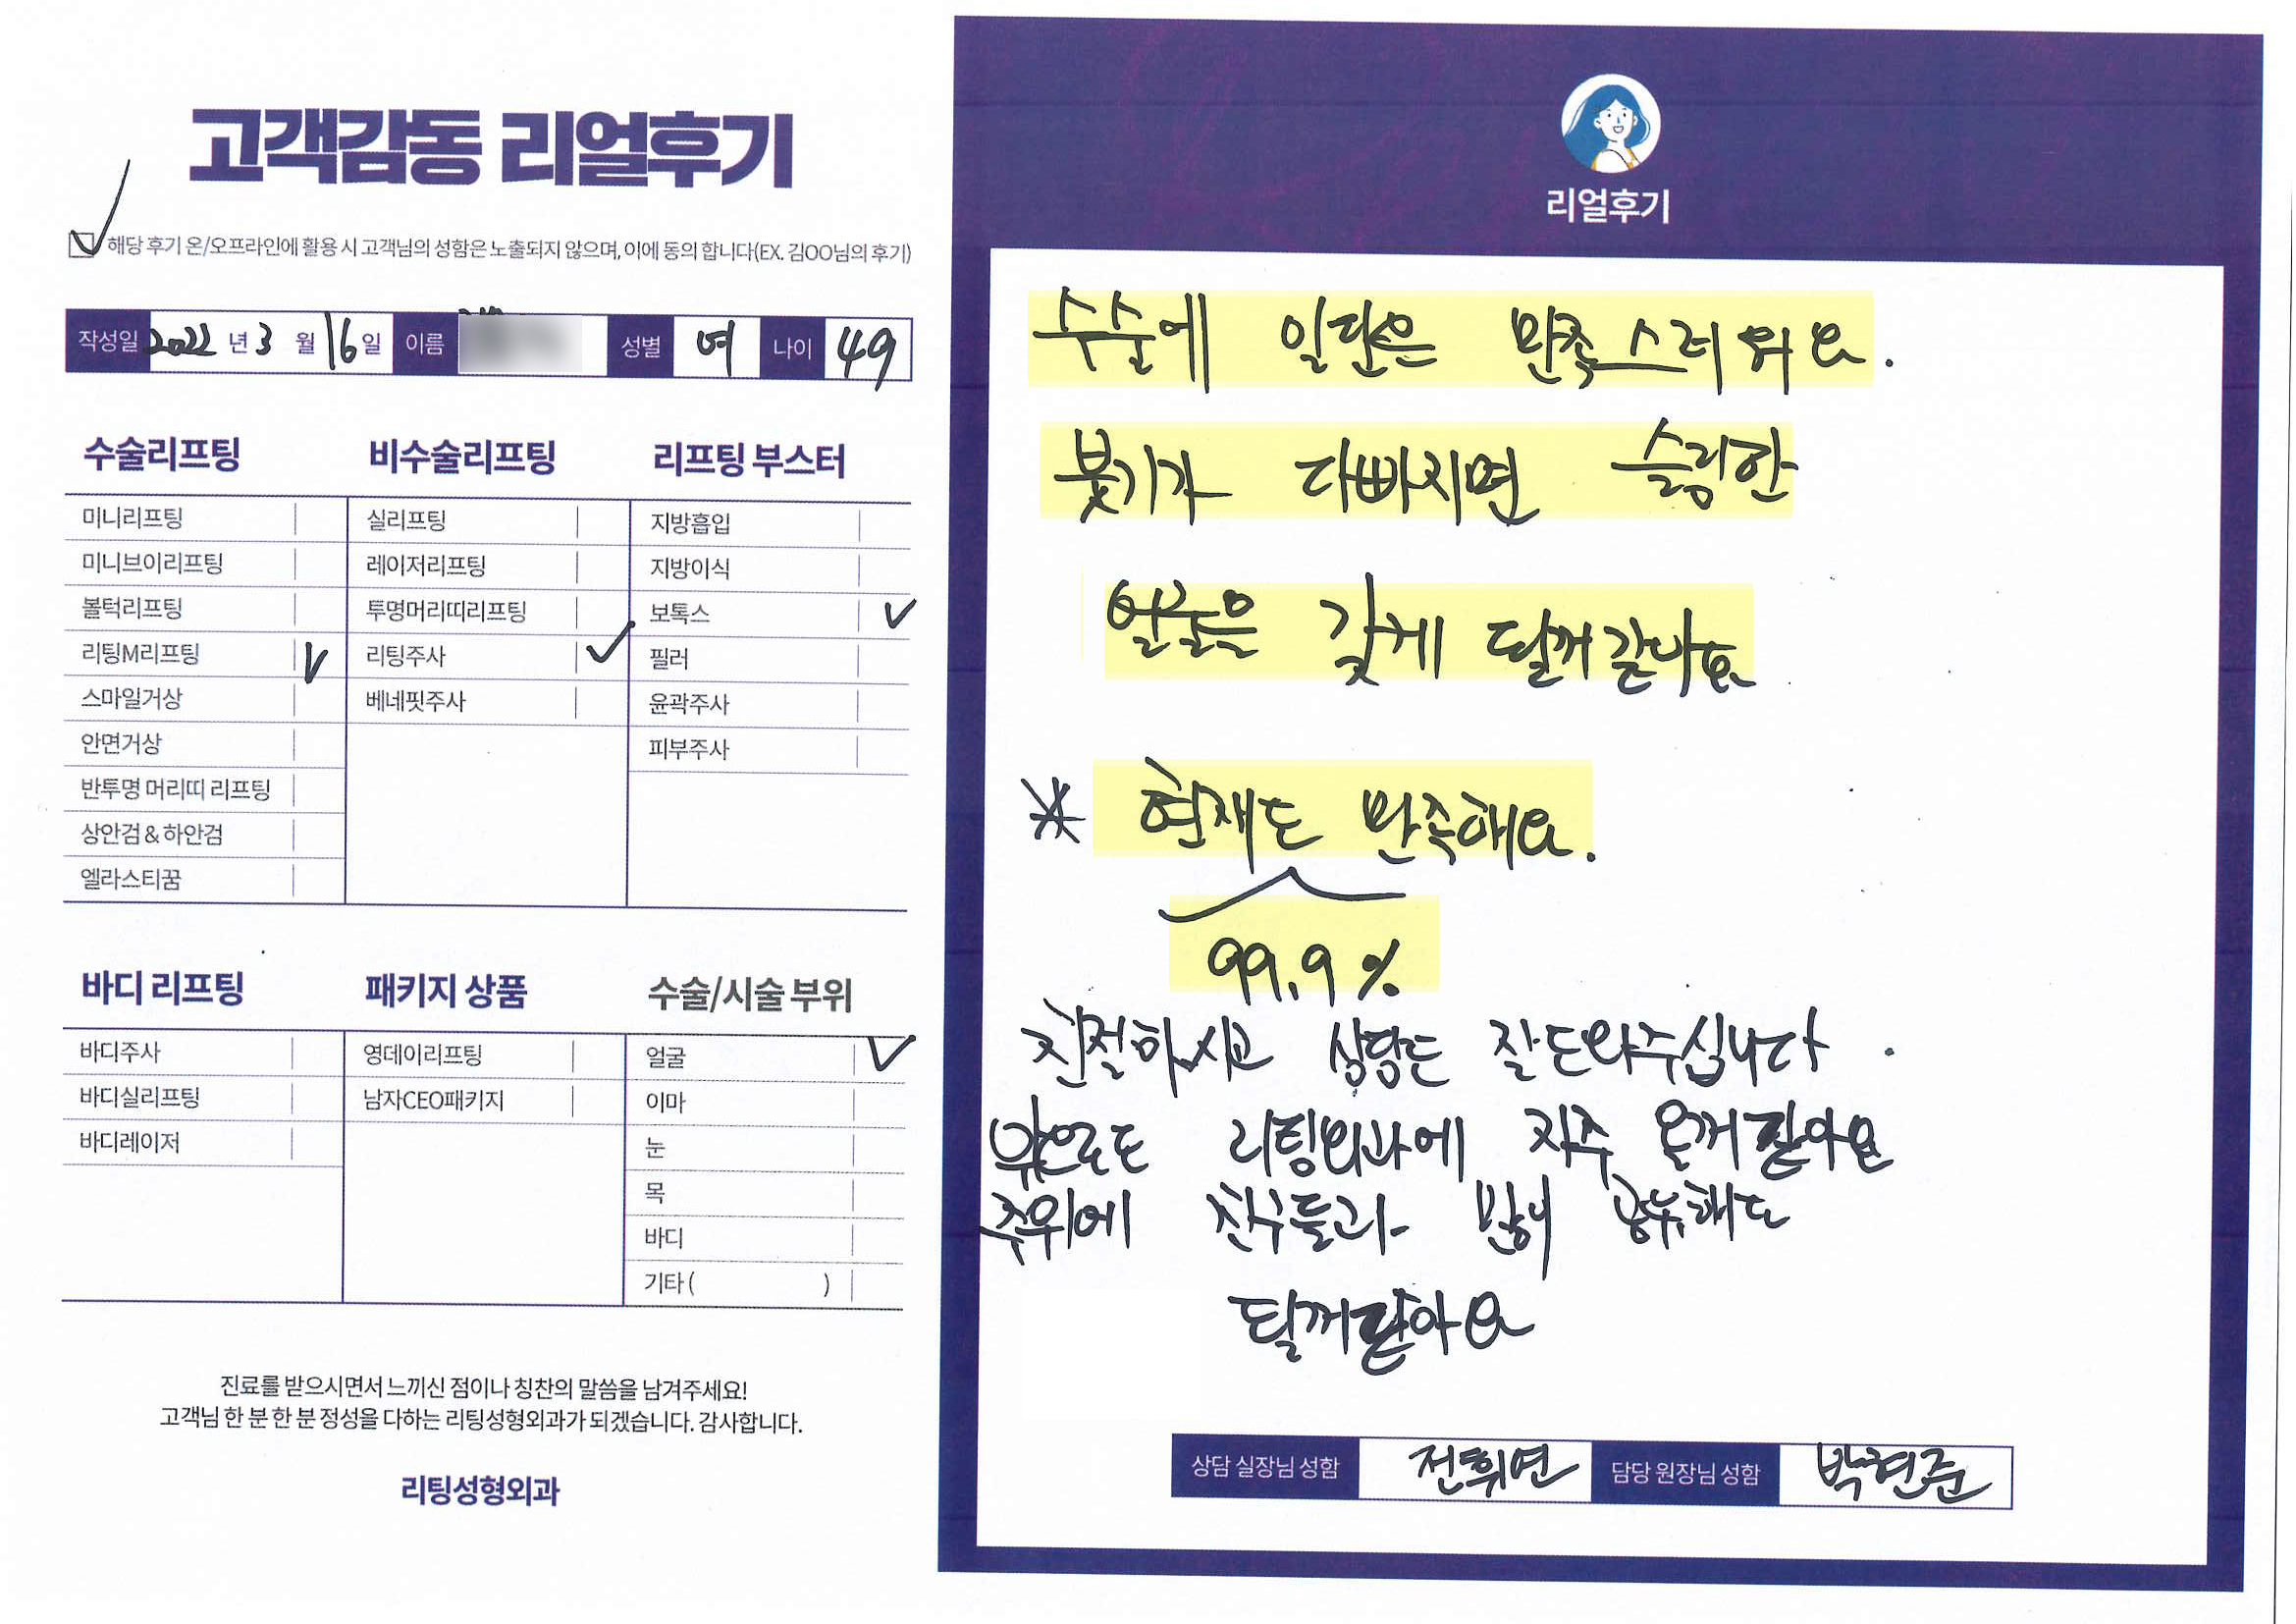 고객감동 리얼후기
해당 후기 온/오프라인에 활용 시 고객님의 성함은 노출되지 않으며, 이에 동의 합니다(EX. 김OO님의 후기)
작성일 2022 년 3 월 16 일 이름 성별 여 나이 49
수술리프팅
미니리프팅
미니브이리프팅
볼턱리프팅
리팅M리프팅
스마일거상
안면거상
반투명 머리띠 리프팅
상안검 & 하안검
엘라스티꿈
비수술리프팅
실리프팅
레이저리프팅
투명머리띠리프팅
리팅주사
베네핏주사
리프팅 부스터
지방흡입
지방이식
보톡스
필러
윤곽주사
피부주사
바디 리프팅
바디주사
바디실리프팅
바디레이저
패키지 상품
영데이리프팅
남자CEO패키지
수술/시술 부위
얼굴
이마
눈
목
바디
기타 ( )
진료를 받으시면서 느끼신 점이나 칭찬의 말씀을 남겨주세요!
고객님 한 분 한 분 정성을 다하는 리팅성형외과가 되겠습니다. 감사합니다.
리팅성형외과
리얼후기
수술에 일단은 만족스러워요.
붓기가 다빠지면 슬림한
얼굴을 갖게 될꺼같아요
※ 현재도 만족해요.
99.9%
친절하시고 상담도 잘도와주십니다.
앞으로도 리팅외과에 자주 올꺼같아요
주위에 친구들과 많이 공유해도
될꺼같아요
상담 실장님 성함 전휘연 담당 원장님 성함 박현준